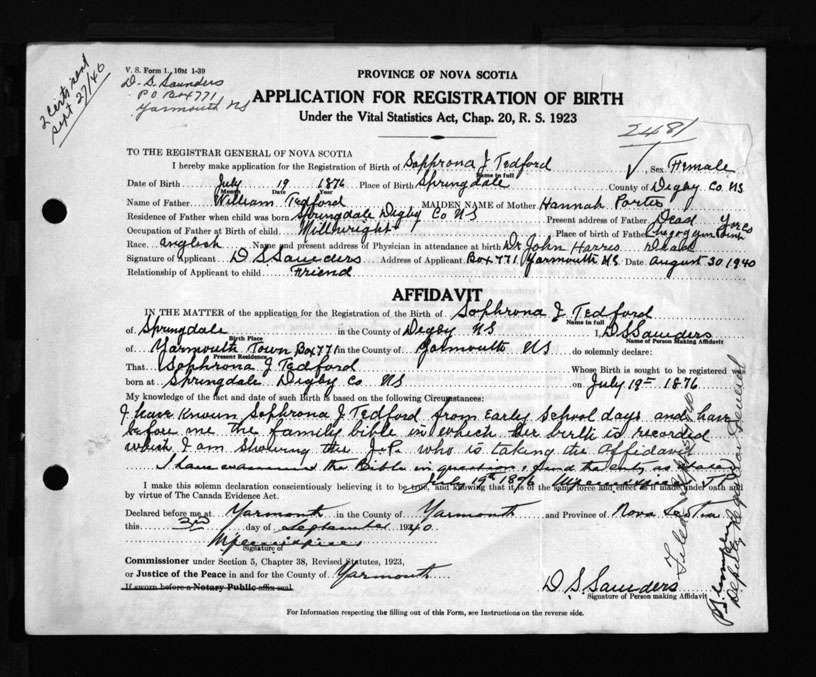 2 Certs sent
Sept 27/40
V. S. Form 1. 10M 1-39
D. S. Saunders
PO Box 771
Yarmouth NS
PROVINCE OF NOVA SCOTIA
APPLICATION FOR REGISTRATION OF BIRTH
Under the Vital Statistics Act, Chap. 20, R. S. 1923
2481
TO THE REGISTRAR GENERAL OF NOVA SCOTIA
I hereby make application for the Registration of Birth of Sophrona J Tedford Sex Female
Name in full
Date of Birth July 19 1876 Place of Birth Springdale County of Digby Co NS
Month Date Year
Name of Father William Tedford MAIDEN NAME of Mother Hannah Porter
Residence of Father when child was born Springdale Digby Co NS Present address of Father Dead
Occupation of Father at Birth of child Millwright Place of Birth of Father
Race English Name and present address of Physician in attendance at birth Dr John Harris Dead
Signature of Applicant D S Saunders Address of Applicant Box 771 Yarmouth NS Date August 30 1940
Relationship of Applicant to child Friend
AFFIDAVIT
IN THE MATTER of the application for the Registration of the Birth of Sophrona J Tedford
Name in full
of Springdale in the County of Digby NS I, D S Saunders
Birth Place Name of Person Making Affidavit
of Yarmouth Town Box 771 in the County of Yarmouth NS do solemnly declare:
Present Residence
That Sophrona J Tedford Whose Birth is sought to be registered was
born at Springdale Digby Co NS on July 19th 1876
My knowledge of the fact and date of such Birth is based on the following Circumstances:
I have known Sophrona J Tedford from Early School days and have
before me the family bible in which Her birth is recorded
which I am showing the J.P. who is taking the Affidavit
I have examined the Bible in question & find the entry as stated
July 19th 1876 J P
I make this solemn declaration conscientiously believing it to be true, and knowing that it is of the same force and effect as if made under oath and
by virtue of The Canada Evidence Act.
Declared before me at Yarmouth in the County of Yarmouth and Province of Nova Scotia
this 3rd day of September 1940
Signature of
Commissioner under Section 5, Chapter 38, Revised Statutes, 1923,
or Justice of the Peace in and for the County of Yarmouth
If sworn before a Notary Public affix seal
D. S. Saunders
Signature of Person making Affidavit
For Information respecting the filling out of this Form, see Instructions on the reverse side.
Deputy Registrar General